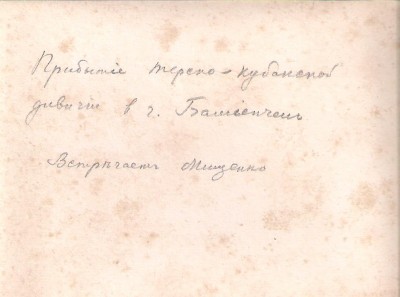 Прибытіе терско-кубанской
дивизіи в г. Баміенчень
Встрѣчаетъ Мищенко